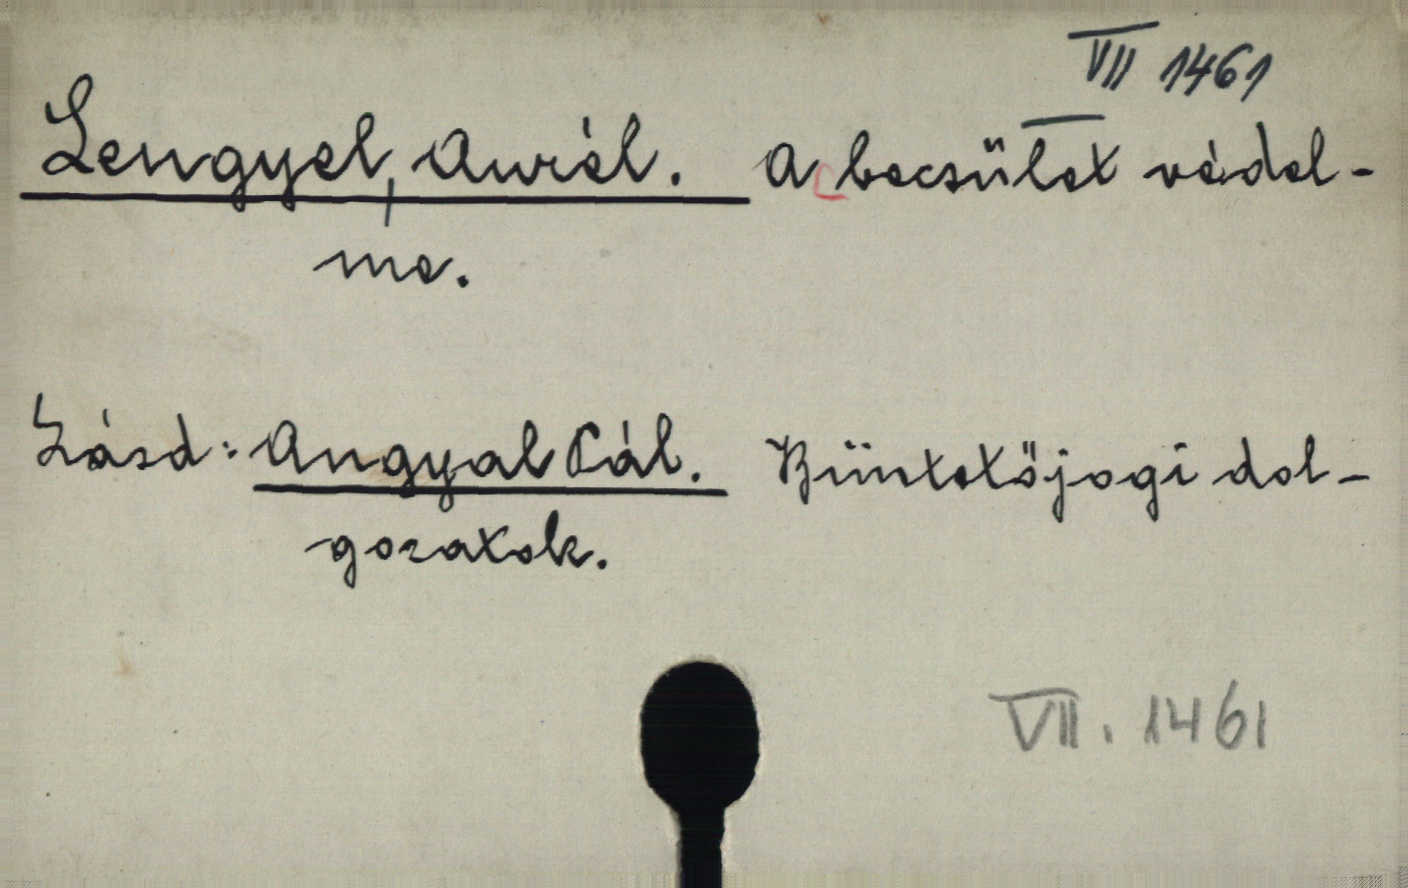 VII 1461
Lengyel, Aurél. A becsület védel-
me.
Lásd: Angyal Pál. Büntetőjogi dol-
gozatok.
VII. 1461